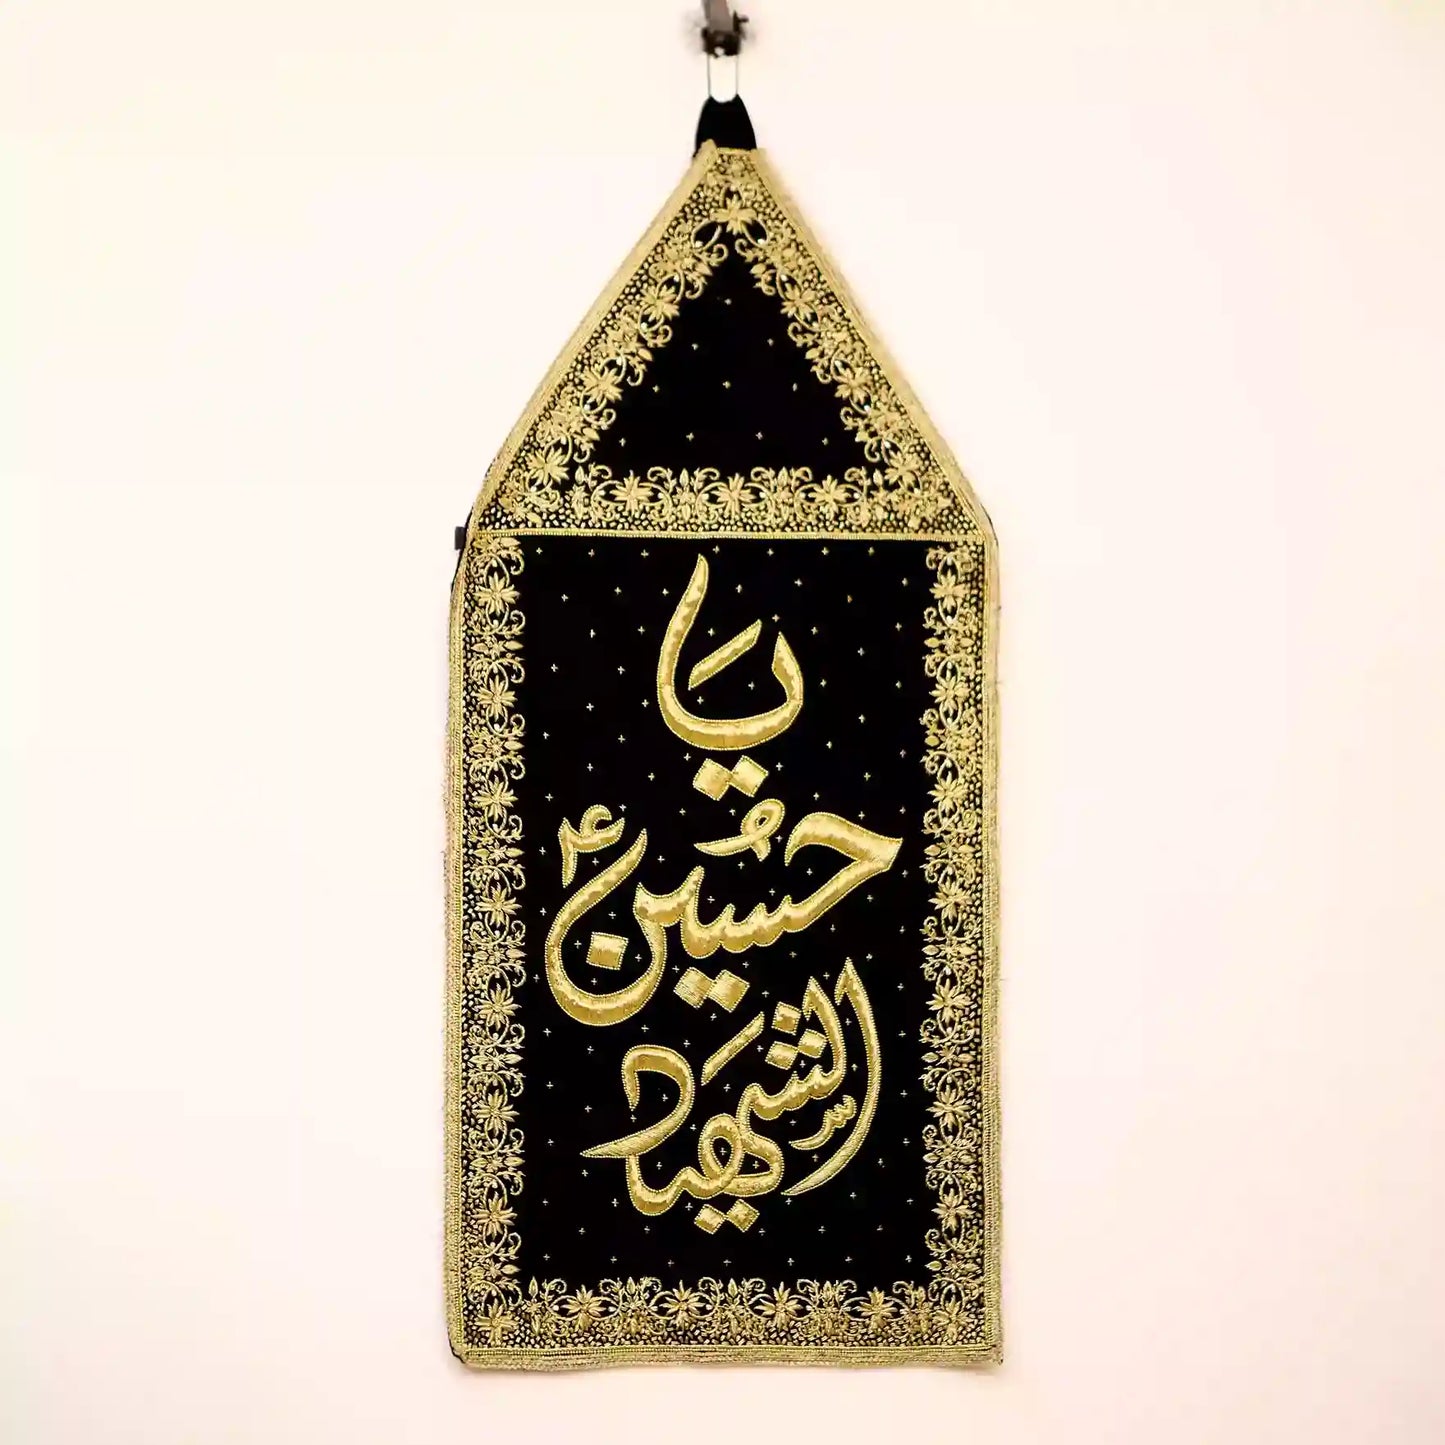 يا
حسينؑ
الشهيد